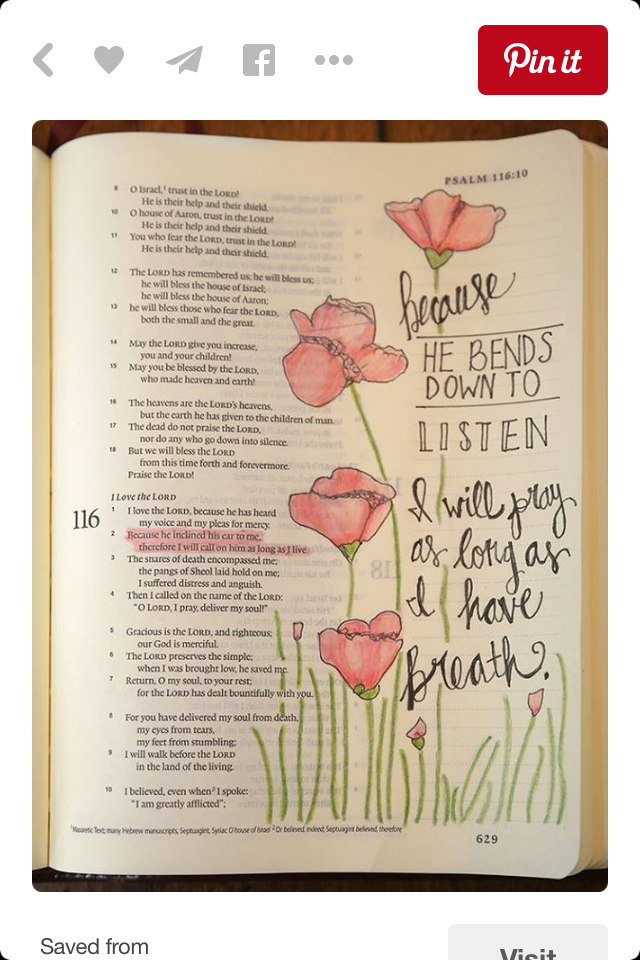 Pin it
PSALM 116:10
9 O Israel,¹ trust in the LORD!
He is their help and their shield.
10 O house of Aaron, trust in the LORD!
He is their help and their shield.
11 You who fear the LORD, trust in the LORD!
He is their help and their shield.
12 The LORD has remembered us; he will bless us;
he will bless the house of Israel;
he will bless the house of Aaron;
13 he will bless those who fear the LORD,
both the small and the great.
14 May the LORD give you increase,
you and your children!
15 May you be blessed by the LORD,
who made heaven and earth!
16 The heavens are the LORD's heavens,
but the earth he has given to the children of man.
17 The dead do not praise the LORD,
nor do any who go down into silence.
18 But we will bless the LORD
from this time forth and forevermore.
Praise the LORD!
I Love the LORD
116 1 I love the LORD, because he has heard
my voice and my pleas for mercy.
2 Because he inclined his ear to me,
therefore I will call on him as long as I live.
3 The snares of death encompassed me;
the pangs of Sheol laid hold on me;
I suffered distress and anguish.
4 Then I called on the name of the LORD:
"O LORD, I pray, deliver my soul!"
5 Gracious is the LORD, and righteous;
our God is merciful.
6 The LORD preserves the simple;
when I was brought low, he saved me.
7 Return, O my soul, to your rest;
for the LORD has dealt bountifully with you.
8 For you have delivered my soul from death,
my eyes from tears,
my feet from stumbling;
9 I will walk before the LORD
in the land of the living.
10 I believed, even when² I spoke:
"I am greatly afflicted";
¹ Masoretic Text; many Hebrew manuscripts, Septuagint, Syriac O house of Israel ² Or believed, indeed; Septuagint believed, therefore
629
because
HE BENDS
DOWN TO
LISTEN
I will pray
as long as
I have
breath.
Saved from
Visit